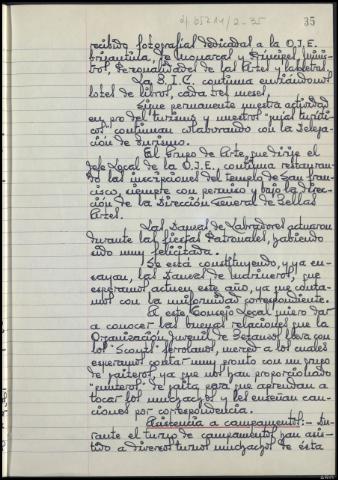 35
recibido fotografías dedicadas a la O.J.E.
brigantina, de Monarcas y Príncipes, Minis-
tros, personalidades de las Artes y las letras.
La B.I.C. continua enviándonos
lotes de libros, cada tres meses.
Sigue permanente nuestra actividad
en pro del turismo y nuestros "guías turísti-
cos" continuan colaborando con la Delega-
ción de Turismo.
El Grupo de Arte, que dirije el
Jefe Local de la O.J.E., continua restauran-
do las inscripciones del templo de San Fran-
cisco, siempre con permiso y bajo la direc-
ción de la Dirección General de Bellas
Artes.
Las Danzas de Labradores actuaron
durante las fiestas Patronales, habiendo
sido muy felicitada.
Se está constituyendo, y ya en-
sayan, las Danzas de Marineros, que
esperamos actuen este año, ya que conta-
mos con la uniformidad correspondiente.
A este Consejo Local quiero dar
a conocer las buenas relaciones que la
Organización Juvenil de Betanzos lleva con
los "Scouts" ferrolanos, merced a los cuales
esperamos contar muy pronto con un grupo
de gaiteros, ya que nos han proporcionado
"punteros" de gaita para que aprendan a
tocar los muchachos y les enseñan can-
ciones por correspondencia.
Asistencia a campamentos:- Du-
rante el turno de campamentos han asis-
tido a diversos turnos muchachos de ésta